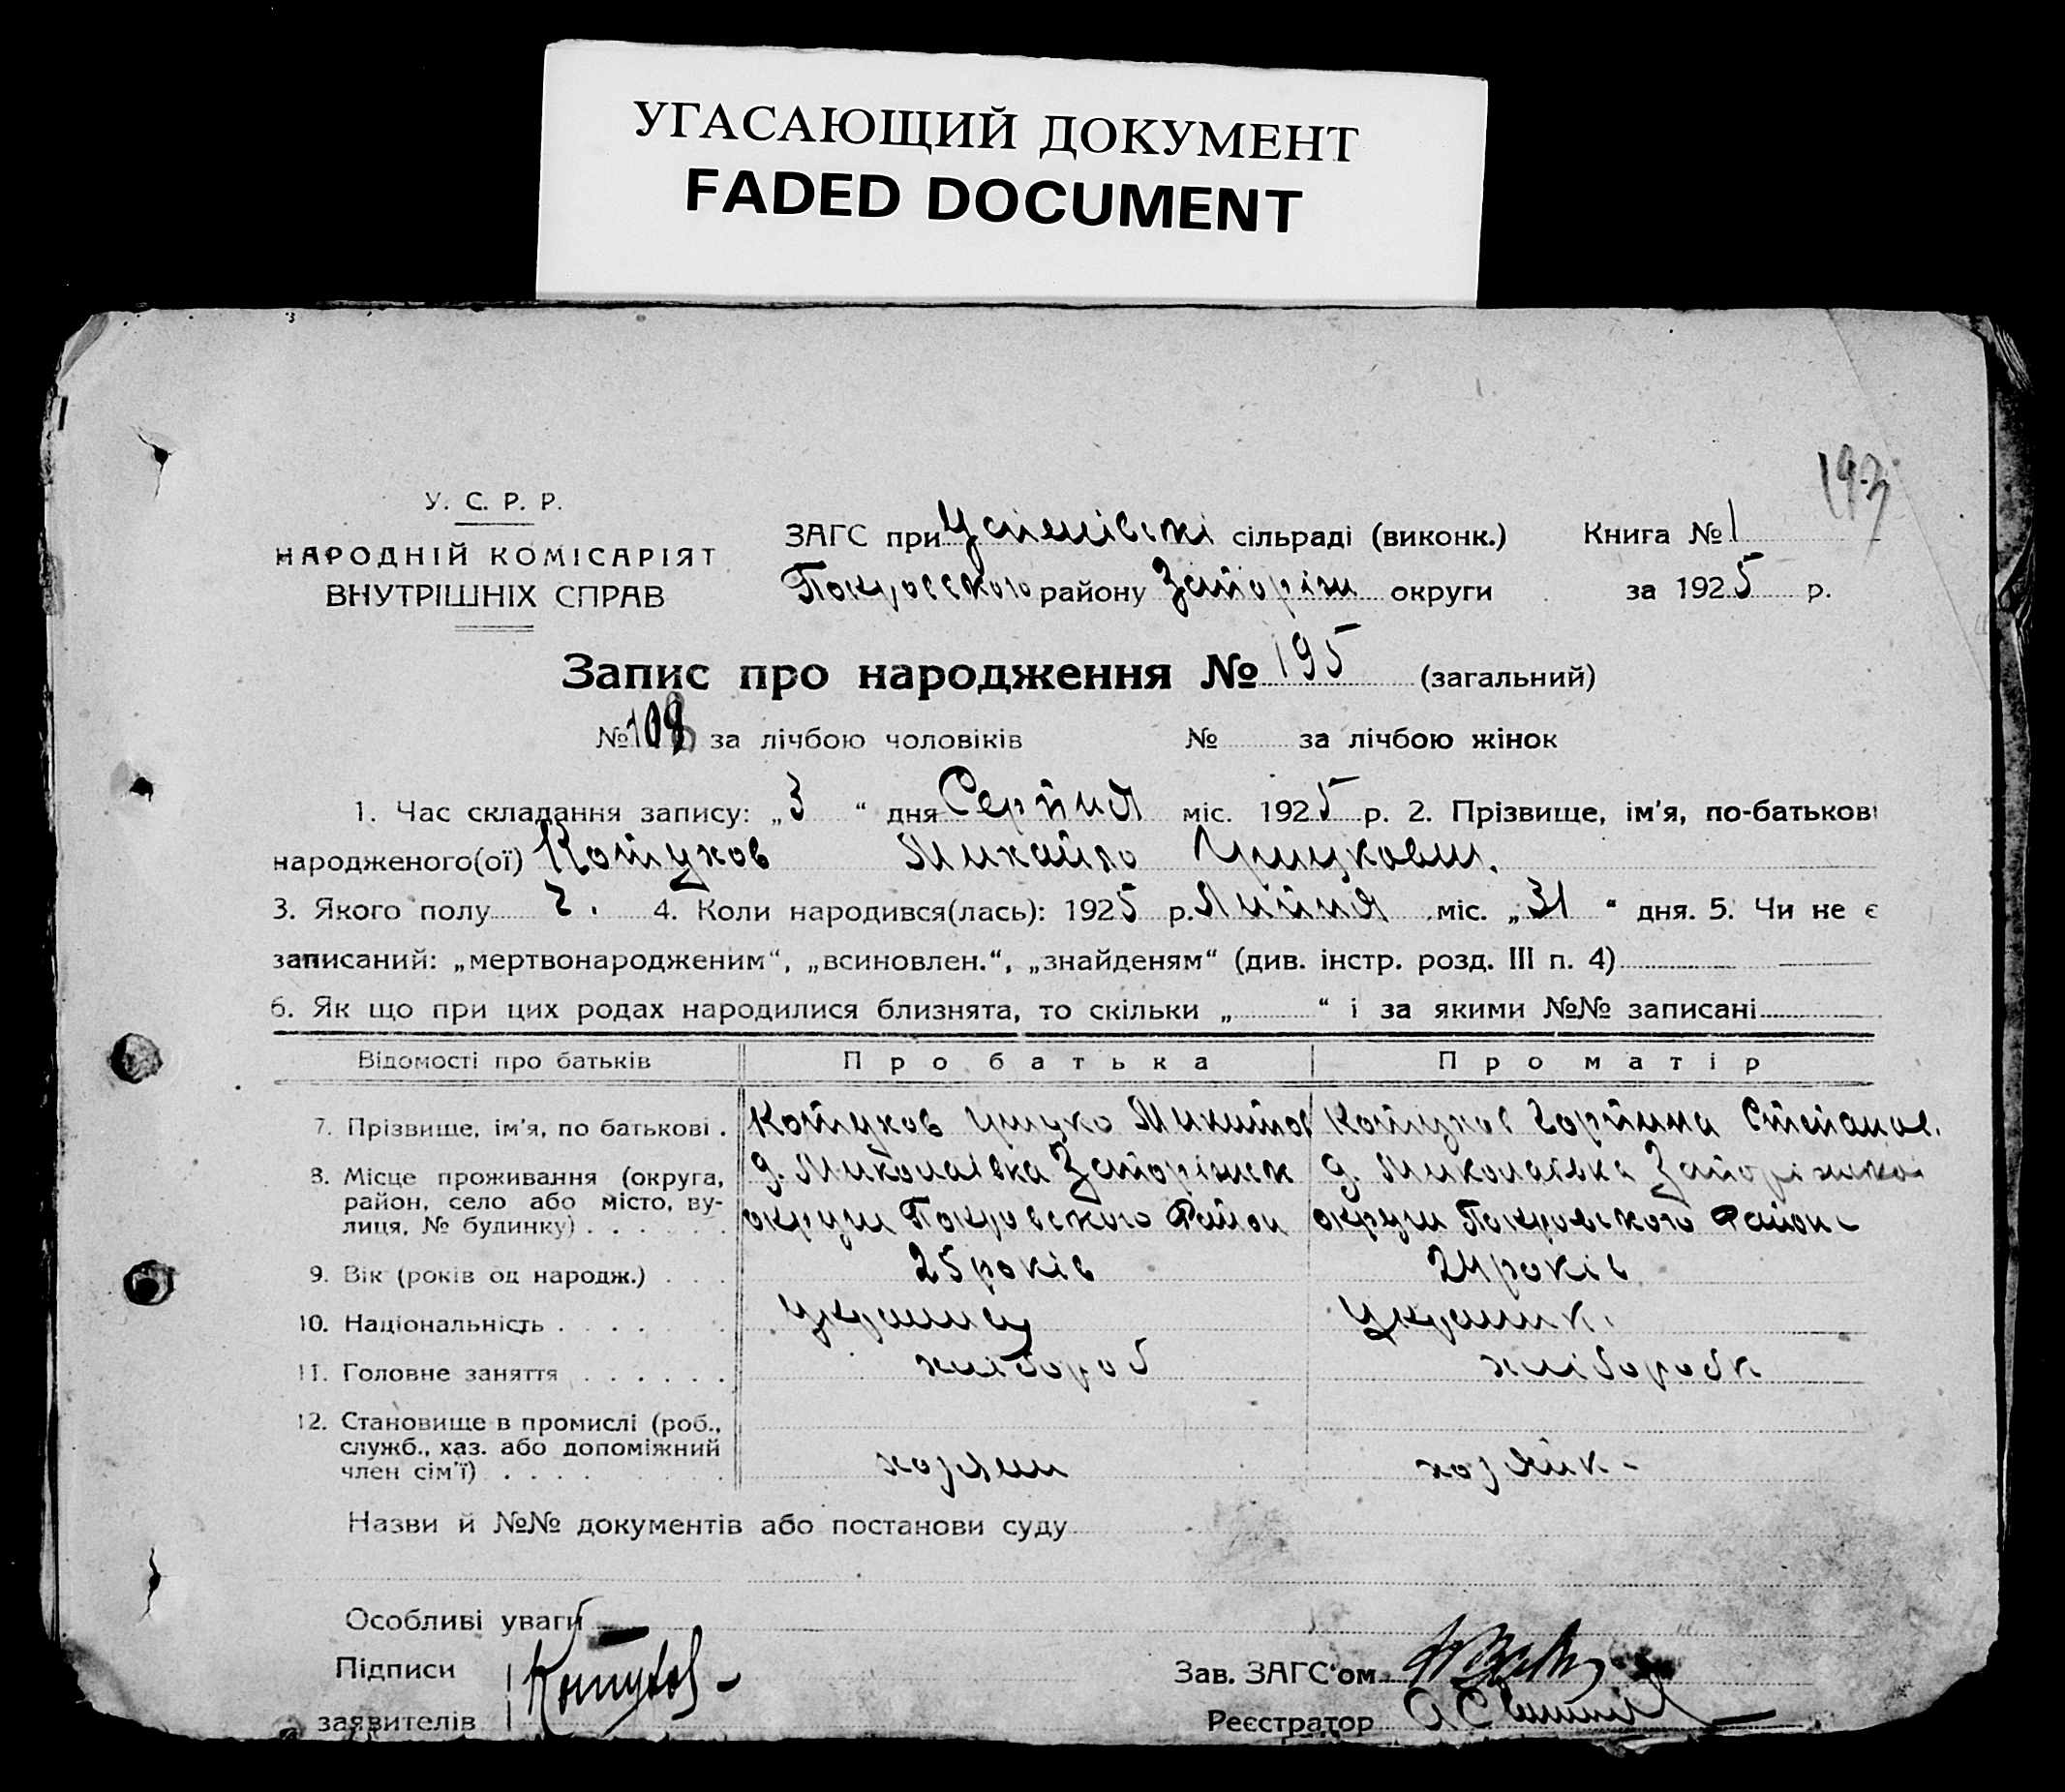 УГАСАЮЩИЙ ДОКУМЕНТ
FADED DOCUMENT
193
У. С. Р. Р.
НАРОДНІЙ КОМІСАРІЯТ
ВНУТРІШНІХ СПРАВ
ЗАГС при Успенівські сільраді (виконк.) Книга № 1
Покровського району Запоріж округи за 1925 р.
Запис про народження № 195 (загальний)
№ 109 за лічбою чоловіків № за лічбою жінок
1. Час складання запису: „3“ дня Серпня міс. 1925 р. 2. Прізвище, ім'я, по-батькові
народженого(ої) Котухов Михайло Грицкович.
3. Якого полу ч. 4. Коли народився(лась): 1925 р. Липня міс. „31“ дня. 5. Чи не є
записаний: „мертвонародженим“, „всиновлен.“, „знайденям“ (див. інстр. розд. III п. 4)
6. Як що при цих родах народилися близнята, то скільки „ “ і за якими №№ записані
Відомості про батьків Про батька Про матір
7. Прізвище, ім'я, по батькові . Котухов Грицко Микитов Котухов Горпина Степанов.
8. Місце проживання (округа, д. Миколаівка Запоріжск д. Миколаівка Запоріжскоі
район, село або місто, ву-
лиця, № будинку) . . . . . . округи Покровского Район округи Покровського Район
9. Вік (років од народж.) . . . 25 років 24 років
10. Національність . . . . . украинец украинк.
11. Головне заняття . . . . . . хлібороб хліборобк
12. Становище в промислі (роб.,
служб., хаз. або допоміжний
член сім'ї) . . . . хозяин хозяйк-
Назви й №№ документів або постанови суду
Особливі уваги
Підписи Котухов Зав. ЗАГС'ом
заявителів Реєстратор